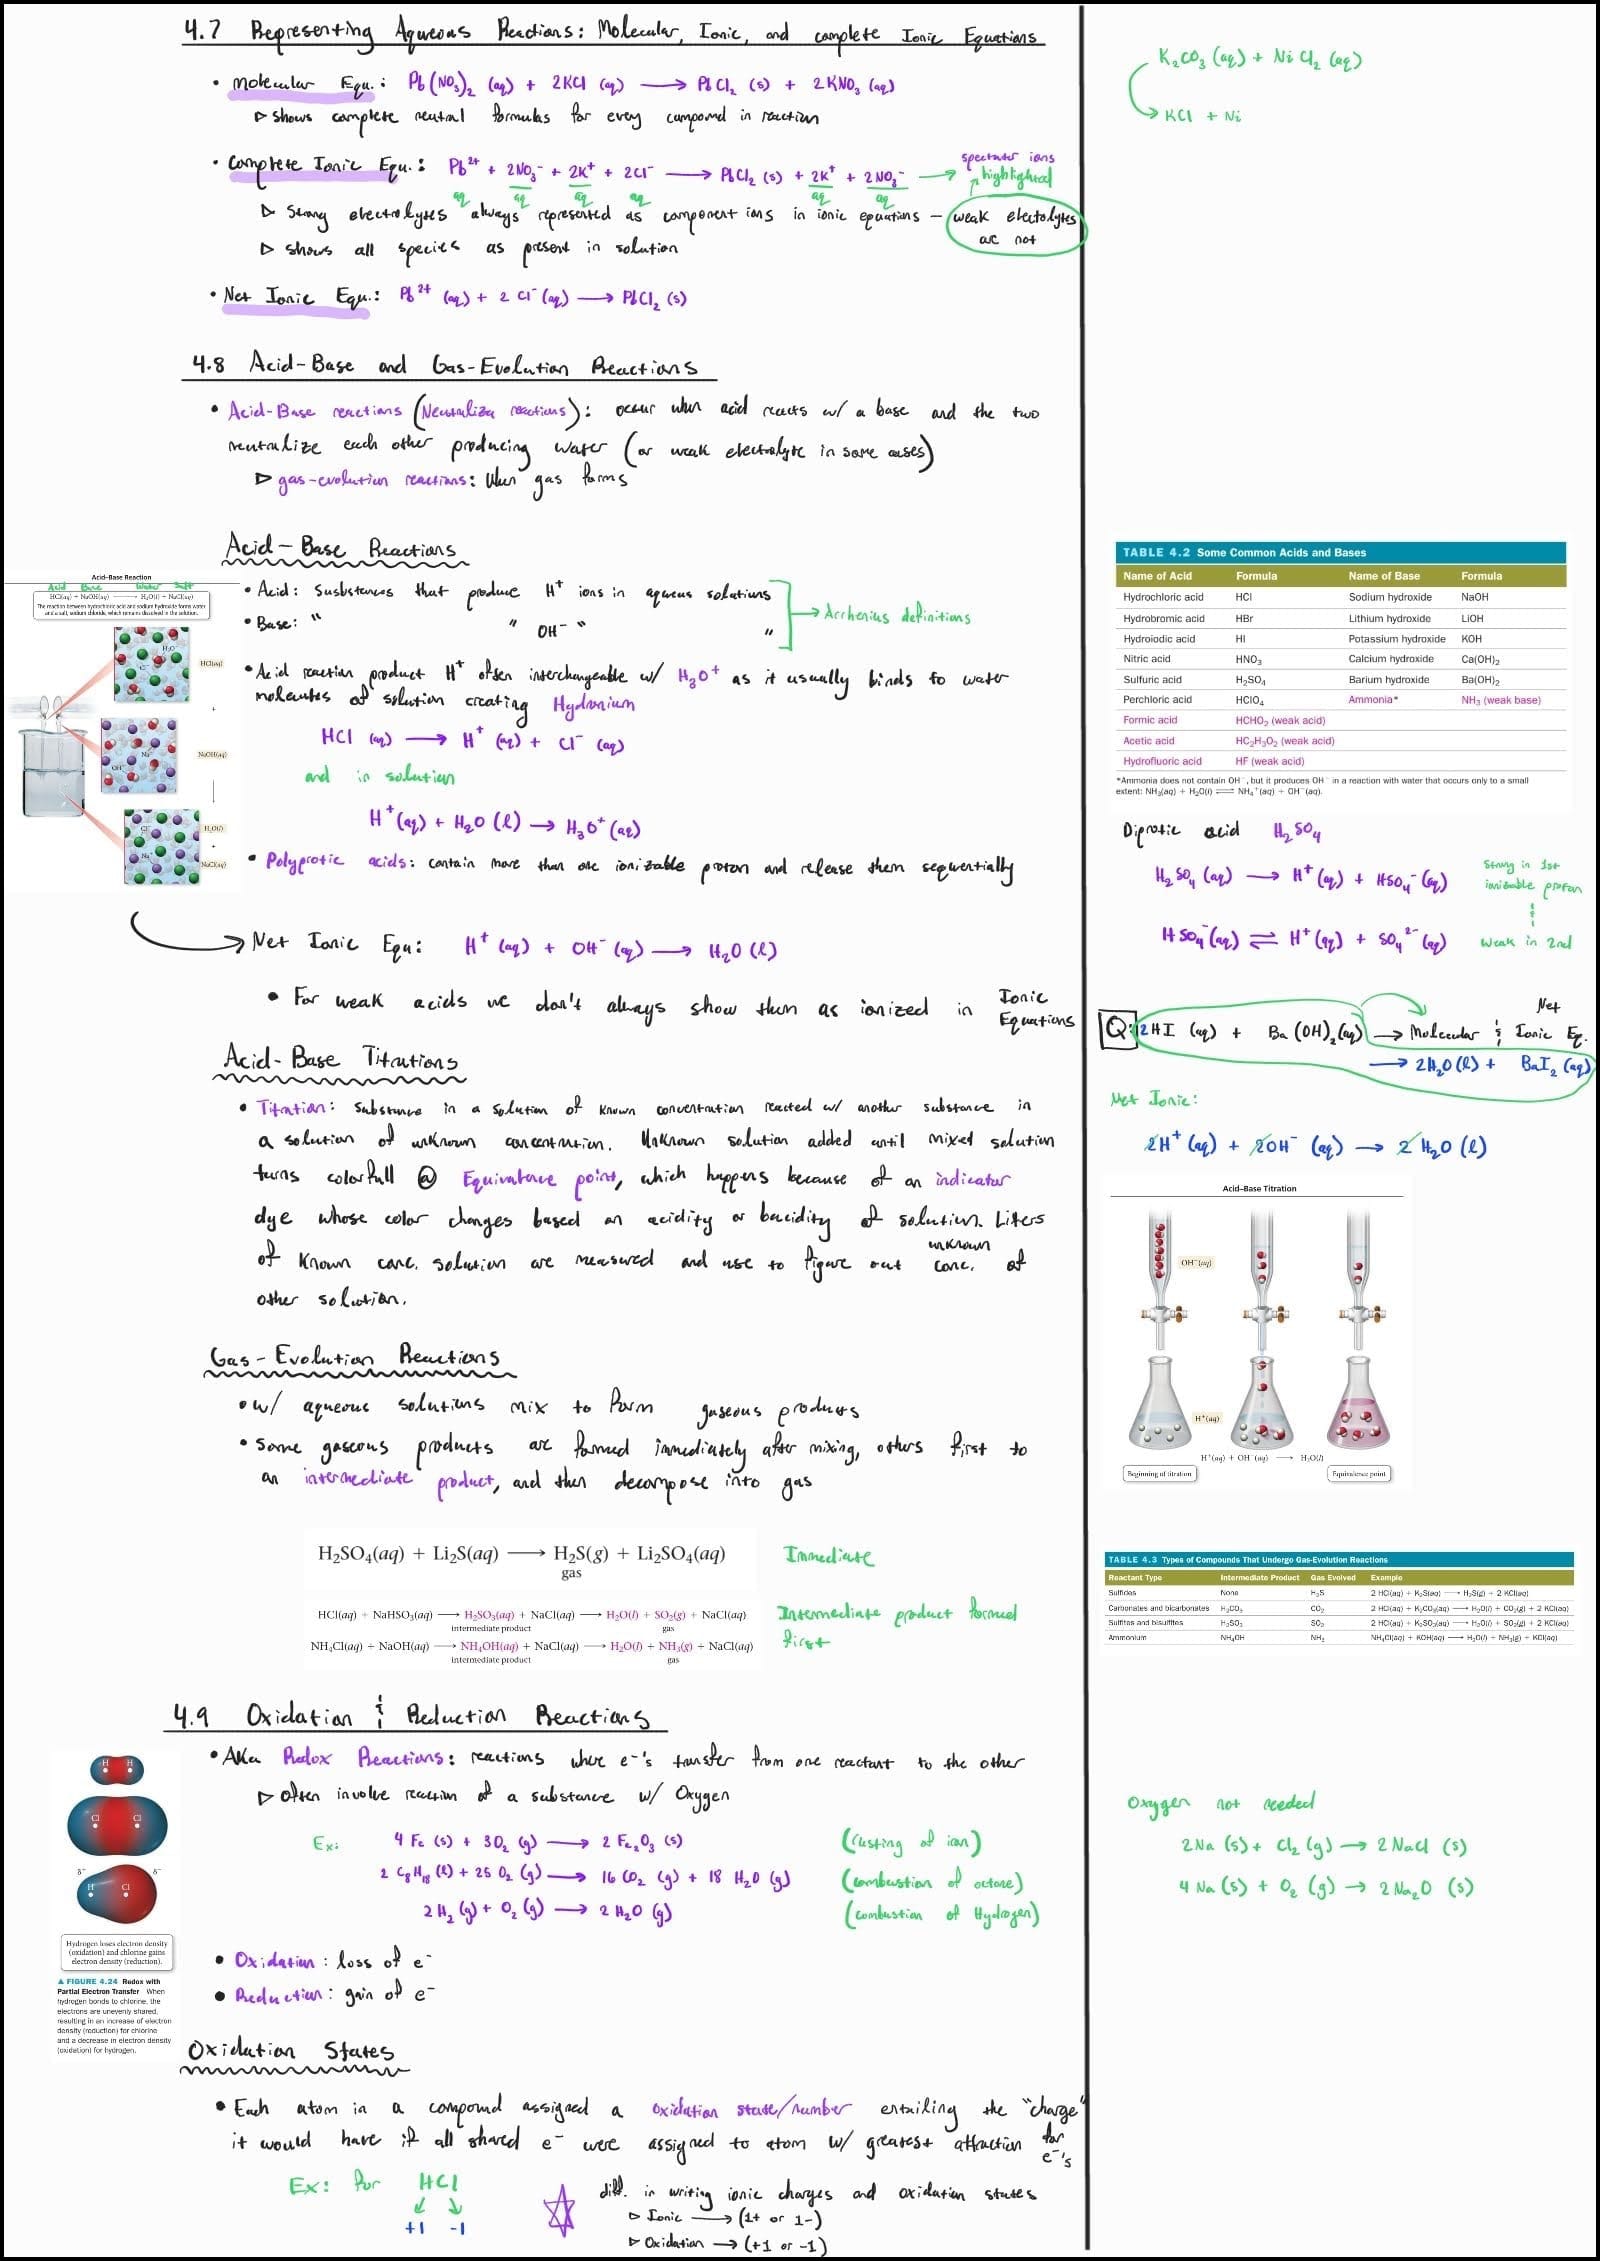 4.7 Representing Aqueous Reactions: Molecular, Ionic, and complete Ionic Equations
• Molecular Equ.: Pb(NO₃)₂ (aq) + 2KCl (aq) → PbCl₂ (s) + 2KNO₃ (aq)
▷ Shows complete neutral formulas for every compound in reaction
• Complete Ionic Equ.: Pb²⁺ + 2NO₃⁻ + 2K⁺ + 2Cl⁻ → PbCl₂ (s) + 2K⁺ + 2NO₃⁻ → spectator ions highlighted
aq aq aq aq aq aq
▷ Strong electrolytes always represented as component ions in ionic equations – weak electrolytes are not
▷ Shows all species as present in solution
• Net Ionic Equ.: Pb²⁺ (aq) + 2 Cl⁻ (aq) → PbCl₂ (s)
K₂CO₃ (aq) + NiCl₂ (aq)
→ KCl + Ni
4.8 Acid-Base and Gas-Evolution Reactions
• Acid-Base reactions (Neutraliza reactions): occur when acid reacts w/ a base and the two
neutralize each other producing water (or weak electrolyte in some cases)
▷ gas-evolution reactions: When gas forms
Acid-Base Reactions
• Acid: Susbstances that produce H⁺ ions in aqueous solutions
• Base: " " OH⁻ " "
→ Arrhenius definitions
• Acid reaction product H⁺ often interchangeable w/ H₃O⁺ as it usually binds to water
molecules of solution creating Hydronium
HCl (aq) → H⁺ (aq) + Cl⁻ (aq)
and in solution
H⁺(aq) + H₂O (l) → H₃O⁺ (aq)
• Polyprotic acids: contain more than one ionizable proton and release them sequentially
→ Net Ionic Equ: H⁺ (aq) + OH⁻ (aq) → H₂O (l)
• For weak acids we don't always show them as ionized in Ionic Equations
Acid–Base Reaction
Acid Base Water Salt
HCl(aq) + NaOH(aq) → H₂O(l) + NaCl(aq)
The reaction between hydrochloric acid and sodium hydroxide forms water
and a salt, sodium chloride, which remains dissolved in the solution.
H₃O⁺
Cl⁻
HCl(aq)
+
Na⁺
OH⁻
NaOH(aq)
Cl⁻
Na⁺
H₂O(l)
+
NaCl(aq)
TABLE 4.2 Some Common Acids and Bases
Name of Acid Formula Name of Base Formula
Hydrochloric acid HCl Sodium hydroxide NaOH
Hydrobromic acid HBr Lithium hydroxide LiOH
Hydroiodic acid HI Potassium hydroxide KOH
Nitric acid HNO₃ Calcium hydroxide Ca(OH)₂
Sulfuric acid H₂SO₄ Barium hydroxide Ba(OH)₂
Perchloric acid HClO₄ Ammonia* NH₃ (weak base)
Formic acid HCHO₂ (weak acid)
Acetic acid HC₂H₃O₂ (weak acid)
Hydrofluoric acid HF (weak acid)
*Ammonia does not contain OH⁻, but it produces OH⁻ in a reaction with water that occurs only to a small
extent: NH₃(aq) + H₂O(l) ⇌ NH₄⁺(aq) + OH⁻(aq).
Diprotic acid H₂SO₄
H₂SO₄ (aq) → H⁺ (aq) + HSO₄⁻ (aq)
Strong in 1st
ionizable proton
HSO₄⁻ (aq) ⇌ H⁺ (aq) + SO₄²⁻ (aq)
Weak in 2nd
Q: 2HI (aq) + Ba(OH)₂ (aq) → Molecular & Net Ionic Eq.
→ 2H₂O (l) + BaI₂ (aq)
Net Ionic:
2H⁺ (aq) + 2OH⁻ (aq) → 2 H₂O (l)
Acid-Base Titrations
• Titration: Substance in a solution of known concentration reacted w/ another substance in
a solution of unknown concentration. Unknown solution added until mixed solution
turns colorfull @ Equivalence point, which happens because of an indicator
dye whose color changes based on acidity or bacidity of solution. Liters
of known conc. solution are measured and use to figure out unknown conc. of
other solution.
Acid–Base Titration
OH⁻(aq)
H⁺(aq)
H⁺(aq) + OH⁻(aq) → H₂O(l)
Beginning of titration
Equivalence point
Gas-Evolution Reactions
• w/ aqueous solutions mix to form gaseous products
• Some gaseous products are formed immediately after mixing, others first to
an intermediate product, and then decompose into gas
H₂SO₄(aq) + Li₂S(aq) → H₂S(g) + Li₂SO₄(aq)
gas
Immediate
HCl(aq) + NaHSO₃(aq) → H₂SO₃(aq) + NaCl(aq) → H₂O(l) + SO₂(g) + NaCl(aq)
intermediate product gas
NH₄Cl(aq) + NaOH(aq) → NH₄OH(aq) + NaCl(aq) → H₂O(l) + NH₃(g) + NaCl(aq)
intermediate product gas
Intermediate product formed
first
TABLE 4.3 Types of Compounds That Undergo Gas-Evolution Reactions
Reactant Type Intermediate Product Gas Evolved Example
Sulfides None H₂S 2 HCl(aq) + K₂S(aq) → H₂S(g) + 2 KCl(aq)
Carbonates and bicarbonates H₂CO₃ CO₂ 2 HCl(aq) + K₂CO₃(aq) → H₂O(l) + CO₂(g) + 2 KCl(aq)
Sulfites and bisulfites H₂SO₃ SO₂ 2 HCl(aq) + K₂SO₃(aq) → H₂O(l) + SO₂(g) + 2 KCl(aq)
Ammonium NH₄OH NH₃ NH₄Cl(aq) + KOH(aq) → H₂O(l) + NH₃(g) + KCl(aq)
4.9 Oxidation & Reduction Reactions
• AKa Redox Reactions: reactions where e⁻'s transfer from one reactant to the other
▷ Often involve reaction of a substance w/ Oxygen
Ex: 4 Fe (s) + 3O₂ (g) → 2 Fe₂O₃ (s) (rusting of iron)
2 C₈H₁₈ (l) + 25 O₂ (g) → 16 CO₂ (g) + 18 H₂O (g) (combustion of octane)
2H₂ (g) + O₂ (g) → 2 H₂O (g) (combustion of Hydrogen)
• Oxidation: loss of e⁻
• Reduction: gain of e⁻
Oxygen not needed
2Na (s) + Cl₂ (g) → 2 NaCl (s)
4 Na (s) + O₂ (g) → 2 Na₂O (s)
H H
Cl Cl
δ⁺ δ⁻
H Cl
Hydrogen loses electron density
(oxidation) and chlorine gains
electron density (reduction).
▲ FIGURE 4.24 Redox with
Partial Electron Transfer When
hydrogen bonds to chlorine, the
electrons are unevenly shared,
resulting in an increase of electron
density (reduction) for chlorine
and a decrease in electron density
(oxidation) for hydrogen.
Oxidation States
• Each atom in a compound assigned a oxidation state/number entailing the "charge"
it would have if all shared e⁻ were assigned to atom w/ greatest attraction for e⁻'s
Ex: For HCl
+1 -1
diff. in writing ionic charges and oxidation states
▷ Ionic → (1+ or 1-)
▷ Oxidation → (+1 or -1)